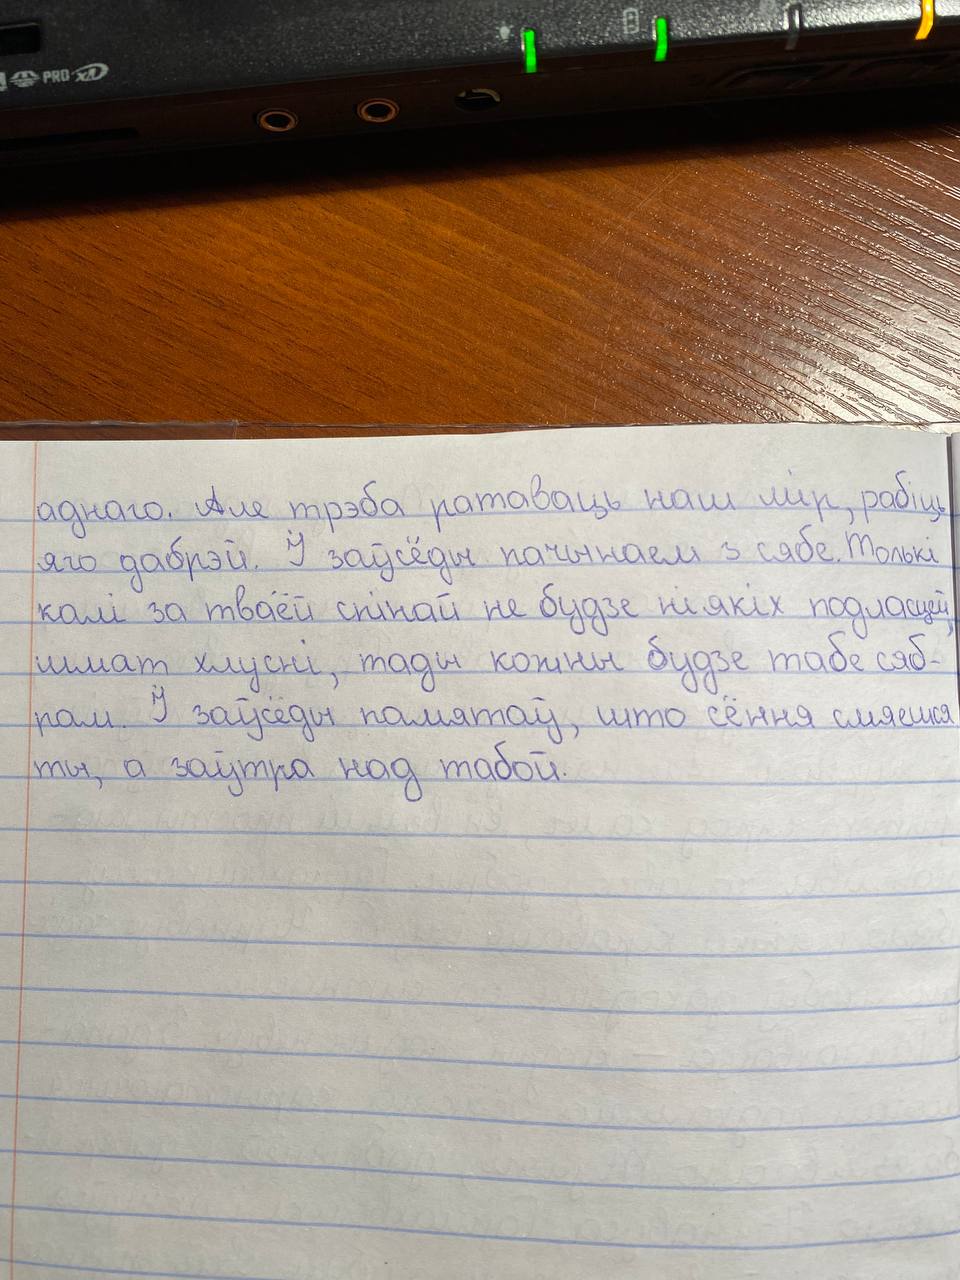 PRO xD
аднаго. Але трэба ратаваць наш мір, рабіць
яго дабрэй. Ў заўсёды пачынаем з сябе. Толькі
калі за тваёй спінай не будзе ніякіх подласцей,
шмат хлусні, тады кожны будзе табе сяб-
рам. Ў заўсёды памятаў, што сёння смяешся
ты, а заўтра над табой.